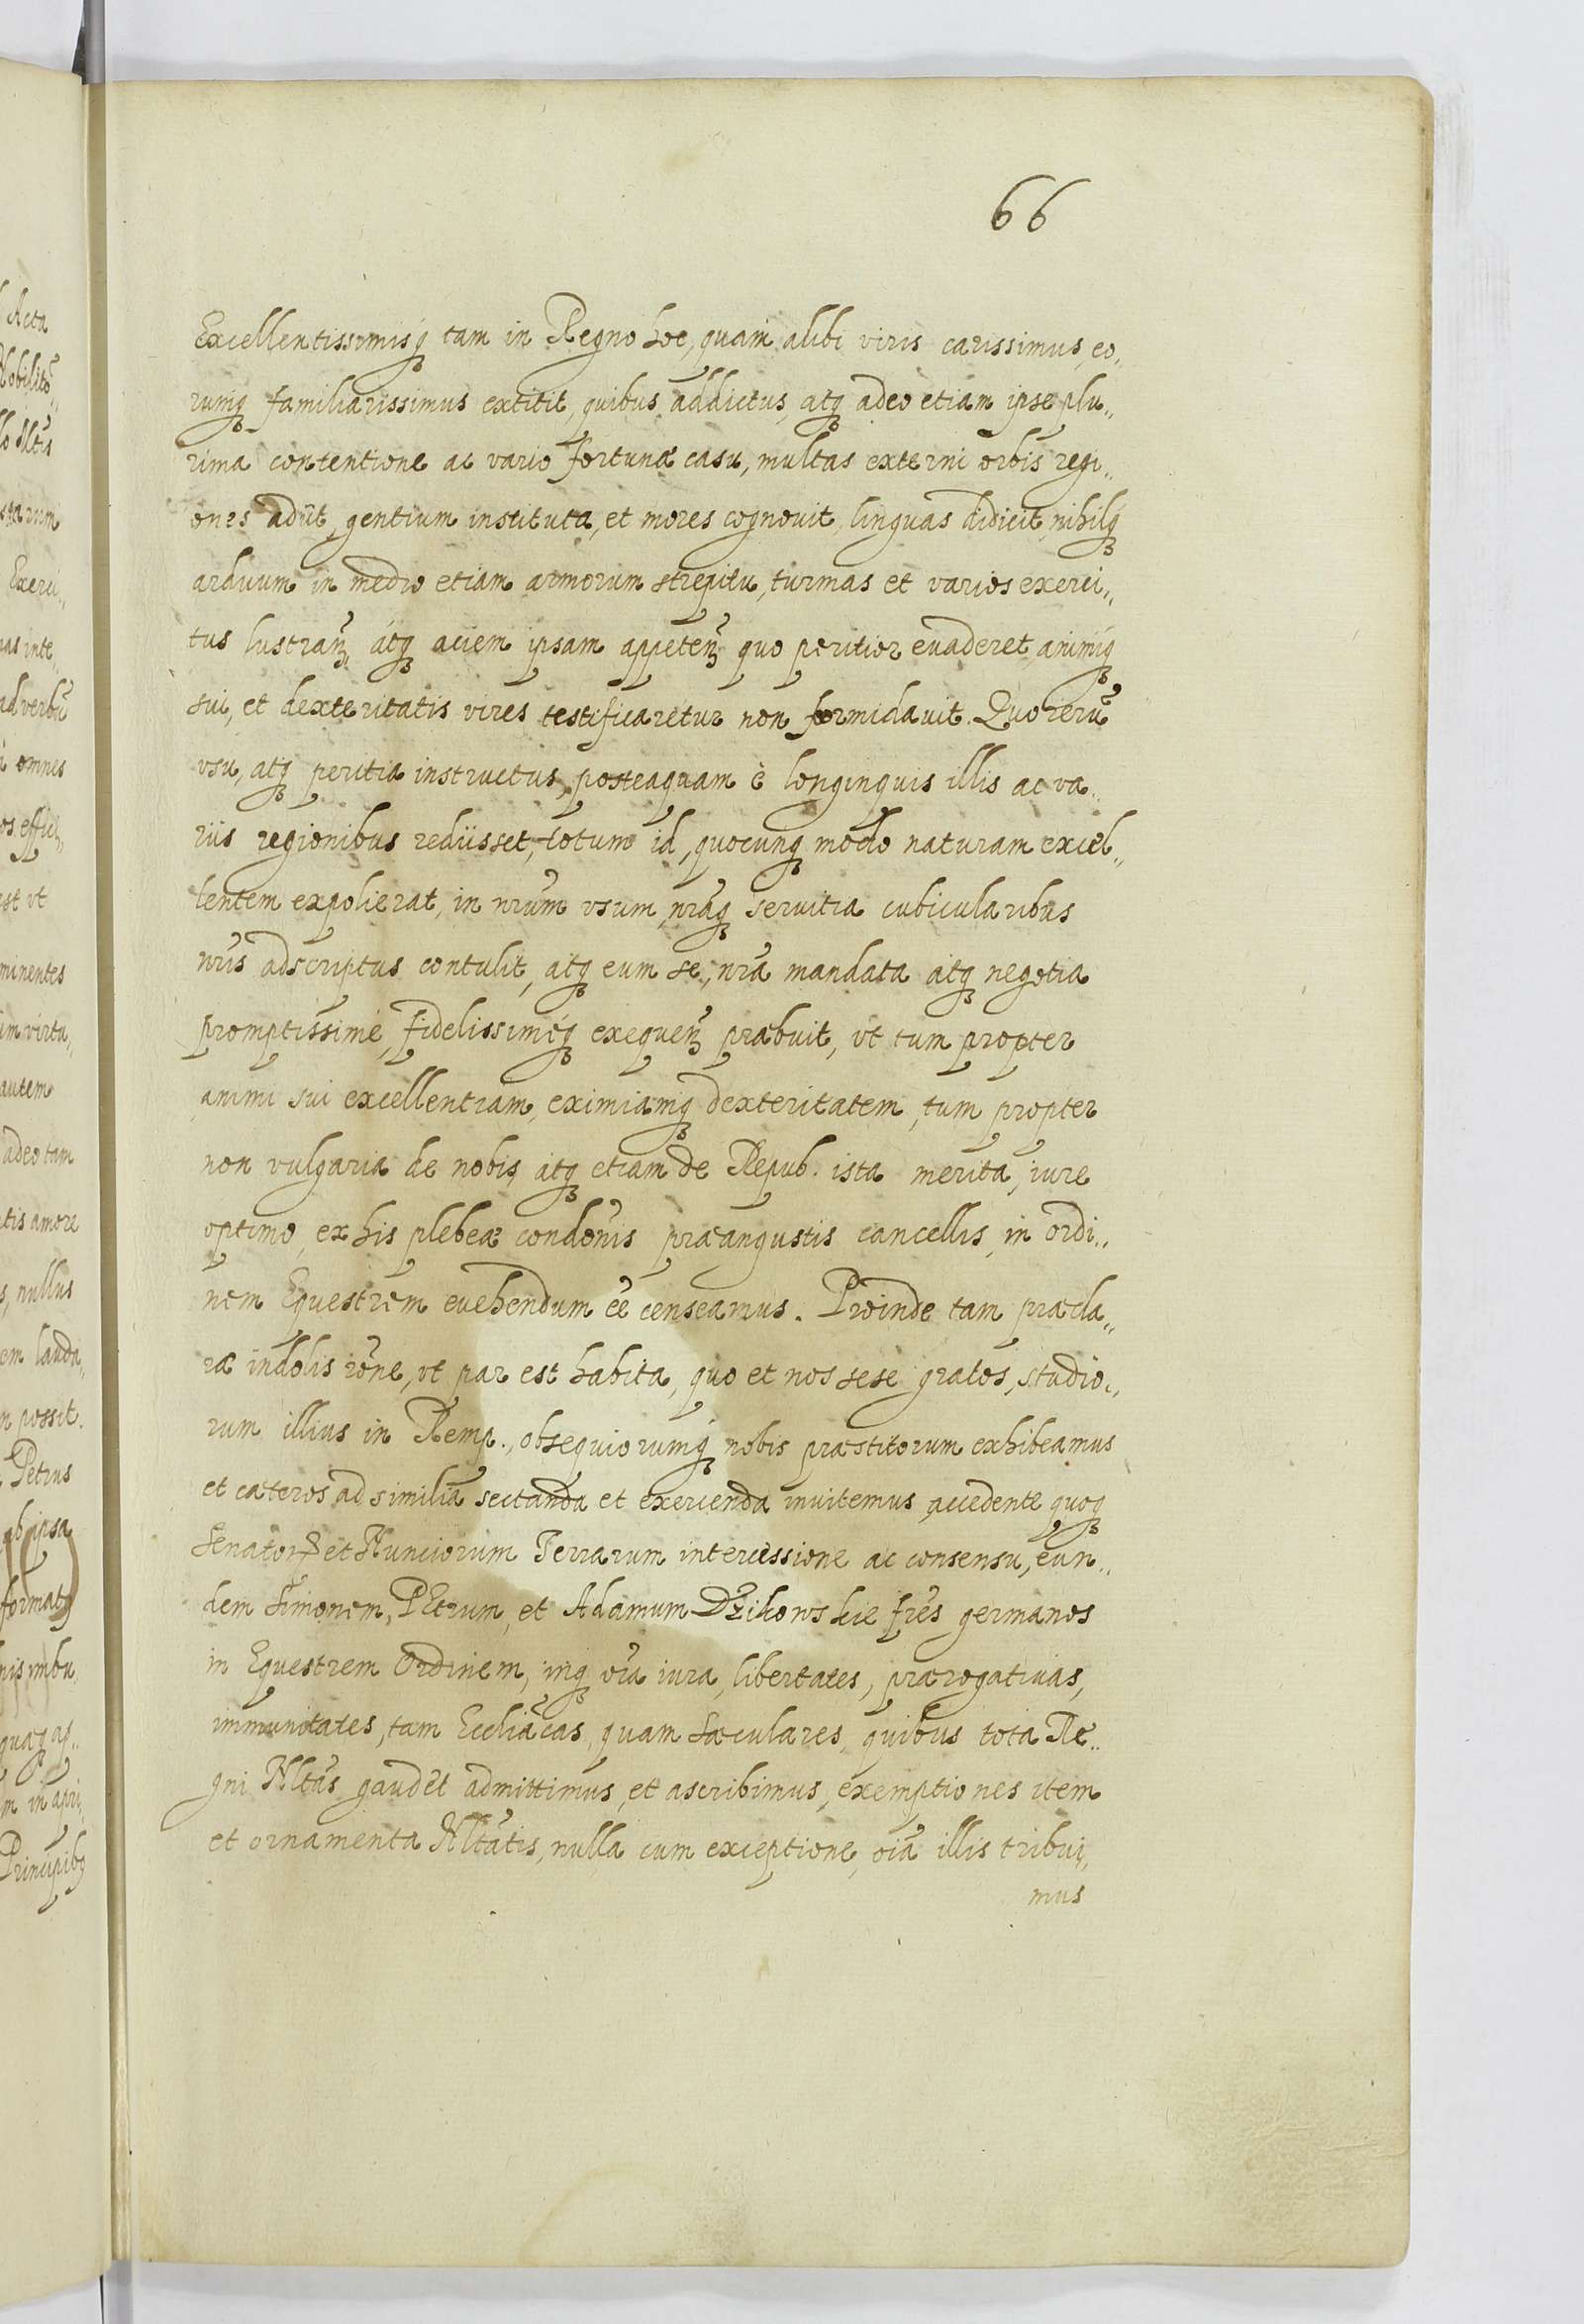 66
Excellentissimisq́ꝫ tam in Regno hoc, quàm alibi viris carissimus, eo,,
rumq́ꝫ familiarissimus extitit, quibus addictus, atq́ꝫ adeo etiam ipse plu,,
rima contentione ac vario fortunæ casu, multas externi orbis regi,,
ones adijt, gentium instituta, et mores cognouit, linguas didicit, nihilq́ꝫ
arduum in medio etiam armorum strepitu, turmas et varios exerci,,
tus lustrañ, atq́ꝫ aciem ipsam appeteñ quo peritior euaderet, animiq́ꝫ
sui, et dexteritatis vires testificaretur non formidauit. Quo rerũ
vsu, atq́ꝫ peritia instructus, posteaquam è longinquis illis ac va,,
riis regionibus rediisset, totum id, quocunq́ꝫ modo naturam excel,,
lentem expolierat, in nr̃um vsum, nr̃aq́ꝫ seruitia cubicularibus
nr̃is adscriptus contulit, atq́ꝫ eum se, nr̃a mandata atq́ꝫ negotia
promptissimè, fidelissiméq́ꝫ exequeñ præbuit, vt tum propter
animi sui excellentiam, eximiamq́ꝫ dexteritatem, tum propter
non vulgaria de nobis atq́ꝫ etiam de Repub. ista merita, iure
optimo, ex his plebeæ condõnis præangustis cancellis, in ordi,,
nem Equestrem euehendum eẽ censeamus. Proinde tam præcla,,
ræ indolis rõne, vt par est habita, quo et nos sese gratos, studio,,
rum illius in Remp., obsequiorumq́ꝫ nobis præstitorum exhibeamus
et cæteros ad similia sectanda et exercenda inuitemus, accedente quoq́ꝫ
Senatorꝝ et Nunciorum Terrarum intercessione ac consensu, eun,,
dem Simonem, PEtrum, et Adamum Dżikowskie fr̃es germanos
in Equestrem Ordinem, inq́ꝫ oĩa iura, libertates, prærogatiuas,
immunitates, tam Eccliãcas, quam sæculares, quibus tota Re,,
gni Nltãs gaudet admittimus, et ascribimus, exemptiones item
et ornamenta Nltãtis, nulla cum exceptione, oĩa illis tribui,,
mus